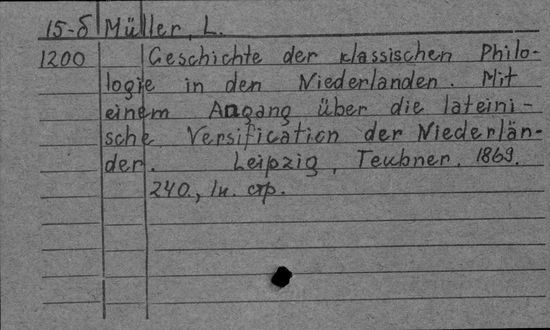 15-δ Müller, L.
1200 Geschichte der klassischen Philo-
logie in den Niederlanden. Mit
einem Angang über die lateini-
sche Versification der Niederlän-
der. Leipzig, Teubner, 1869.
240., In. стр.